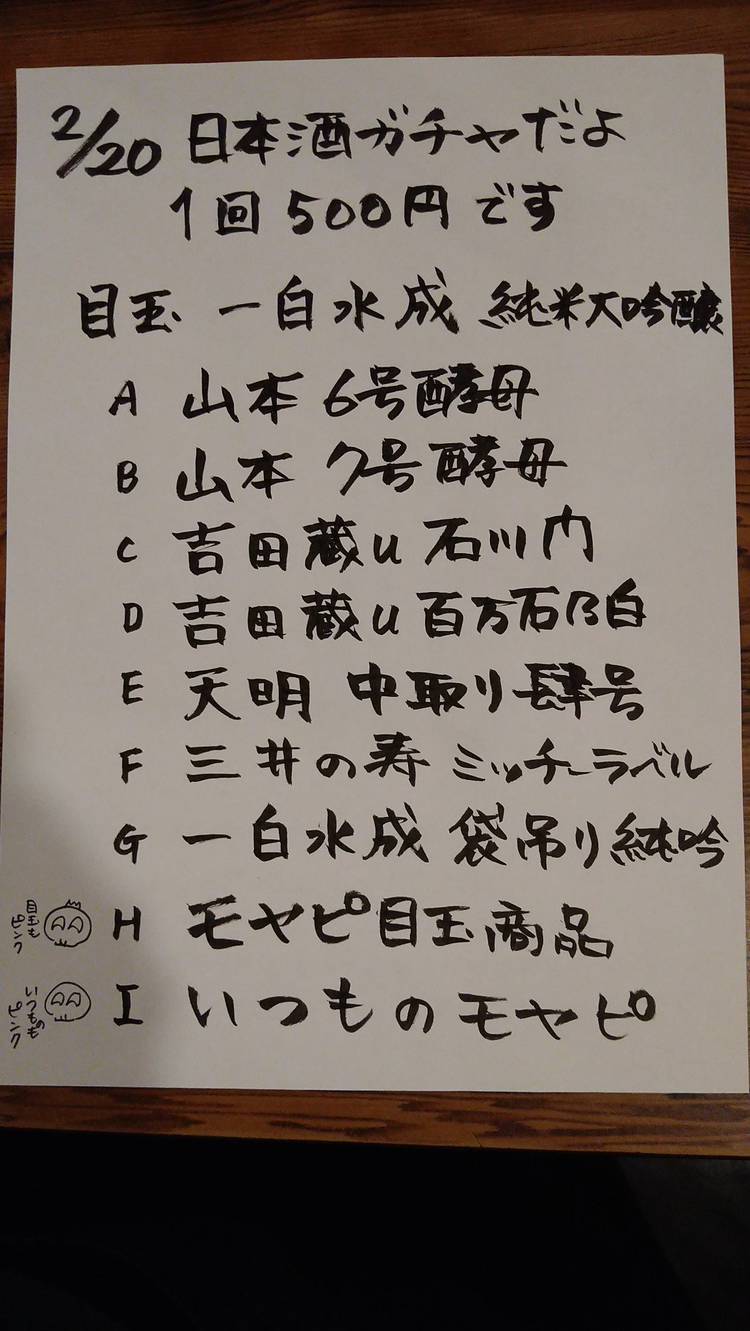 2/20 日本酒ガチャだよ
1回 500円 です
目玉 一白水成 純米大吟醸
A 山本 6号酵母
B 山本 7号酵母
C 吉田蔵u 石川門
D 吉田蔵u 百万石乃白
E 天明 中取り肆号
F 三井の寿 ミッチーラベル
G 一白水成 袋吊り純吟
目玉も
ピンク
H モヤピ目玉商品
いつものも
ピンク
I いつものモヤピ